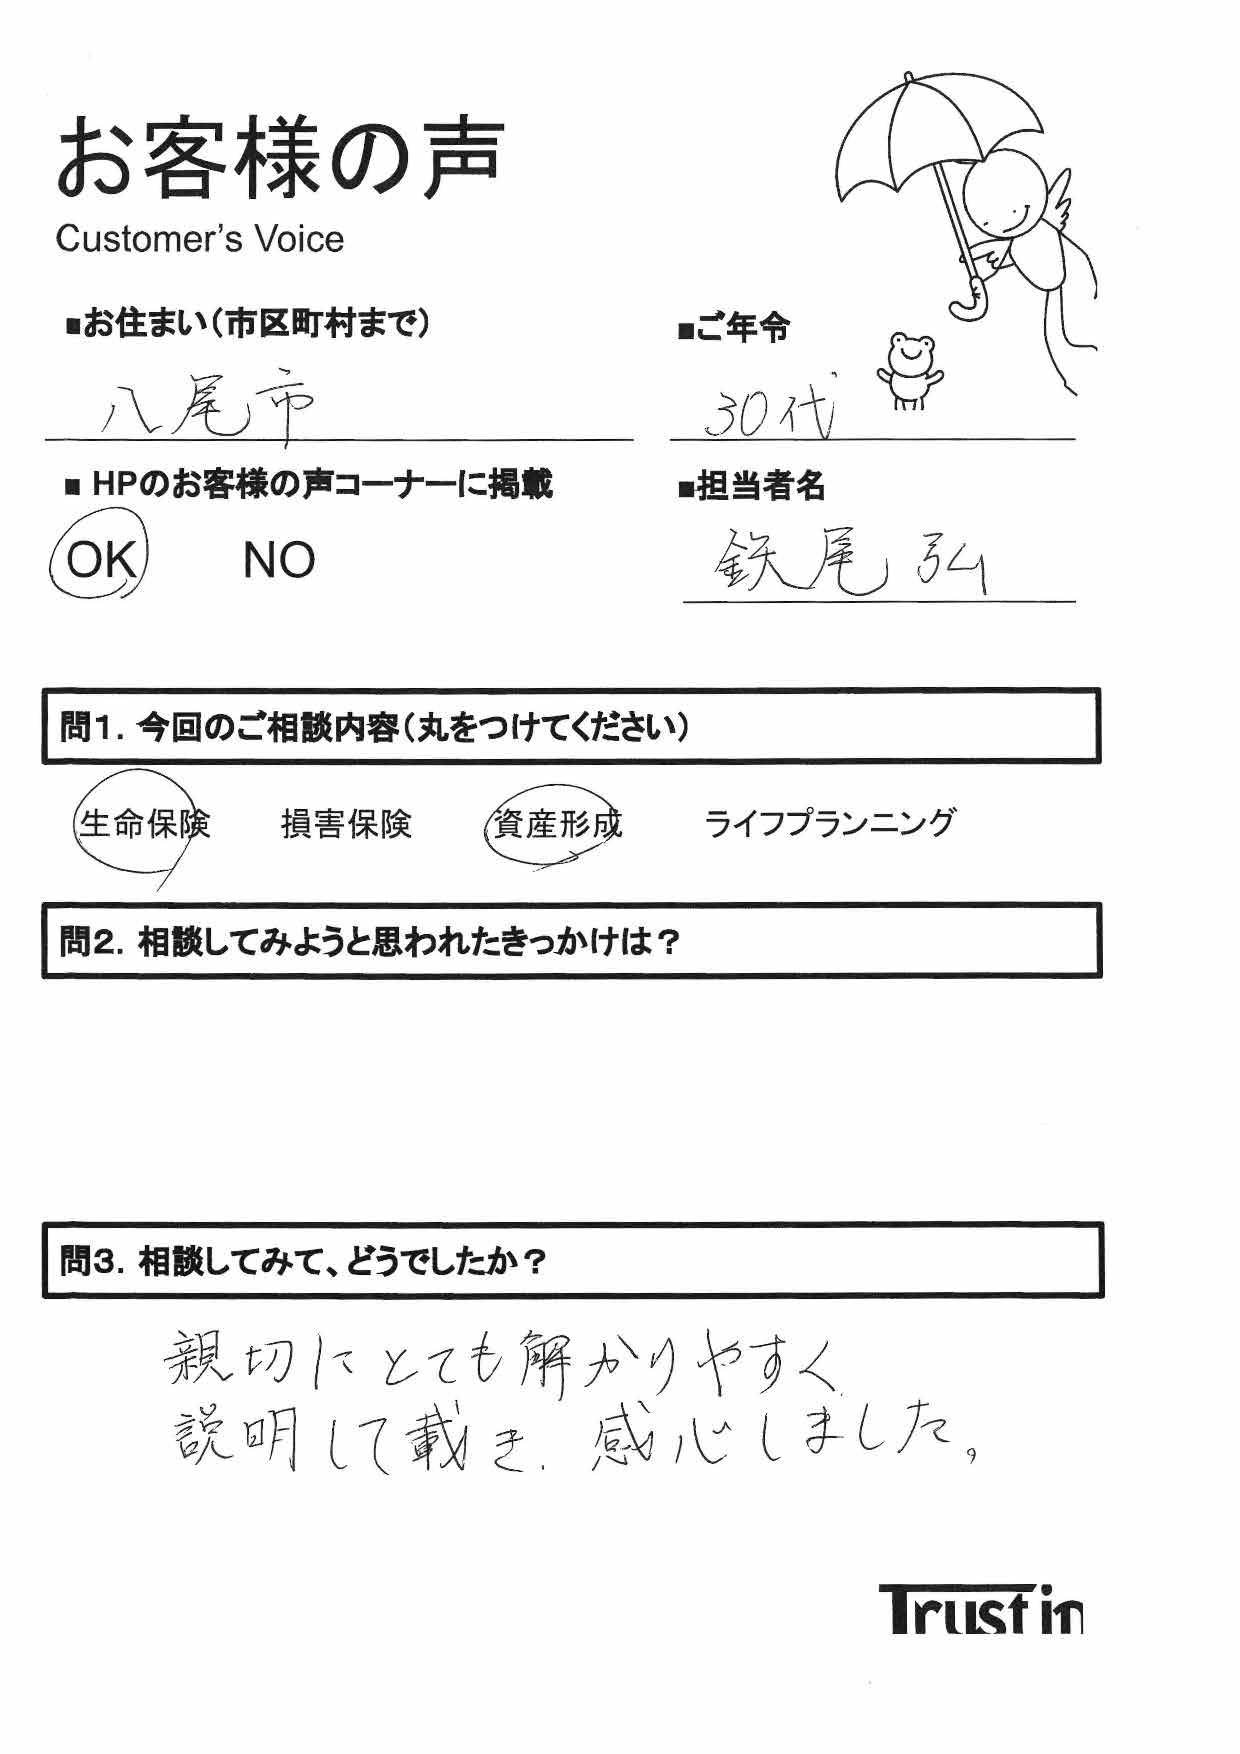 お客様の声
Customer's Voice
■お住まい(市区町村まで)
八尾市
■ご年令
30代
■ HPのお客様の声コーナーに掲載
OK NO
■担当者名
鉄尾 弘
問1. 今回のご相談内容(丸をつけてください)
生命保険 損害保険 資産形成 ライフプランニング
問2. 相談してみようと思われたきっかけは?
問3. 相談してみて、どうでしたか?
親切にとても解かりやすく
説明して載き、感心しました。
Trust in